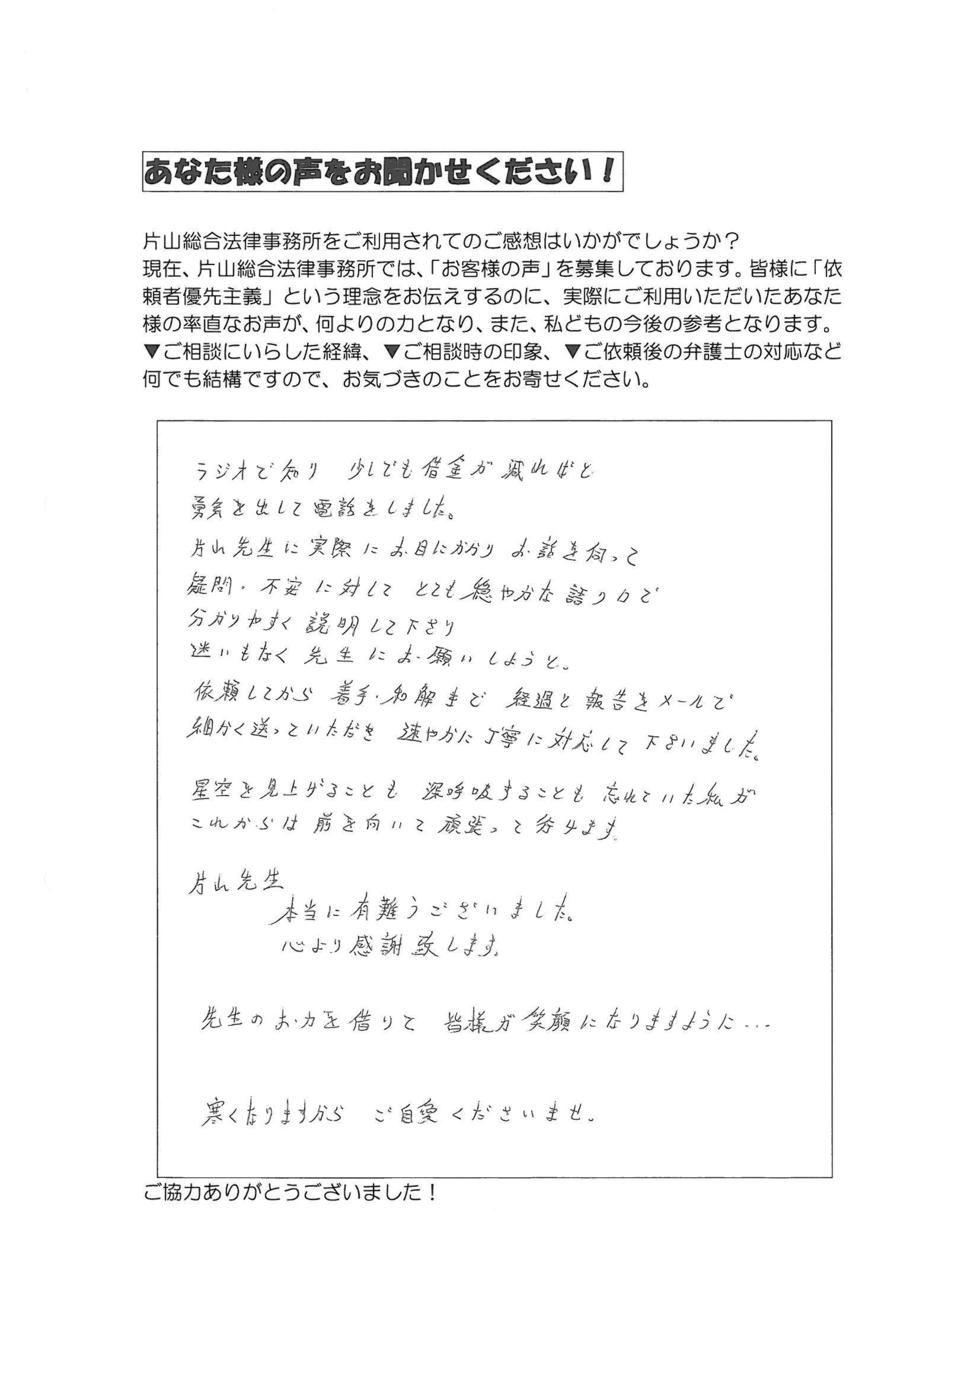 あなた様の声をお聞かせください！
片山総合法律事務所をご利用されてのご感想はいかがでしょうか？
現在、片山総合法律事務所では、「お客様の声」を募集しております。皆様に「依
頼者優先主義」という理念をお伝えするのに、実際にご利用いただいたあなた
様の率直なお声が、何よりの力となり、また、私どもの今後の参考となります。
▼ご相談にいらした経緯、▼ご相談時の印象、▼ご依頼後の弁護士の対応など
何でも結構ですので、お気づきのことをお寄せください。
ラジオで知り 少しでも借金が減ればと
勇気を出して電話をしました。
片山先生に実際にお目にかかり お話を伺って
疑問・不安に対して とても穏やかな語り口で
分かりやすく説明して下さり
迷いもなく先生にお願いしようと。
依頼してから 着手・和解まで 経過と報告をメールで
細かく送っていただき 速やかに丁寧に対応して下さいました。
星空を見上げることも 深呼吸することも 忘れていた私が
これからは前を向いて頑張って参ります。
片山先生
本当に有難うございました。
心より感謝致します。
先生のお力を借りて 皆様が笑顔になりますように…
寒くなりますから ご自愛くださいませ。
ご協力ありがとうございました！